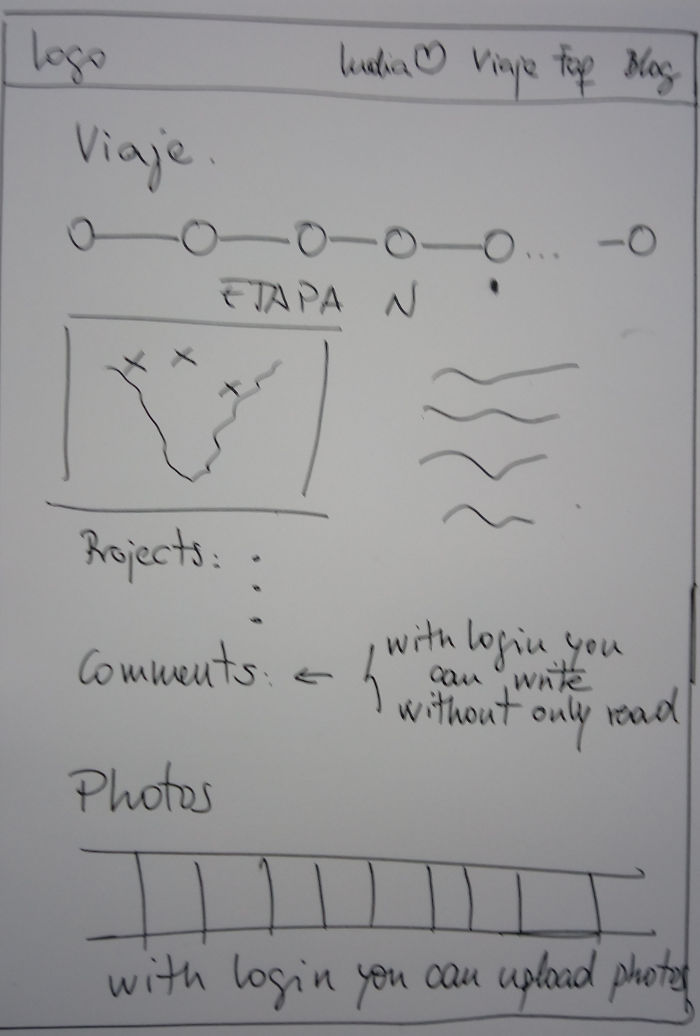 Logo
India♡ Viaje Top Blog
Viaje.
...
ETAPA N
Projects:
Comments: ←
with login you
can write
without only read
Photos
with login you can upload photos